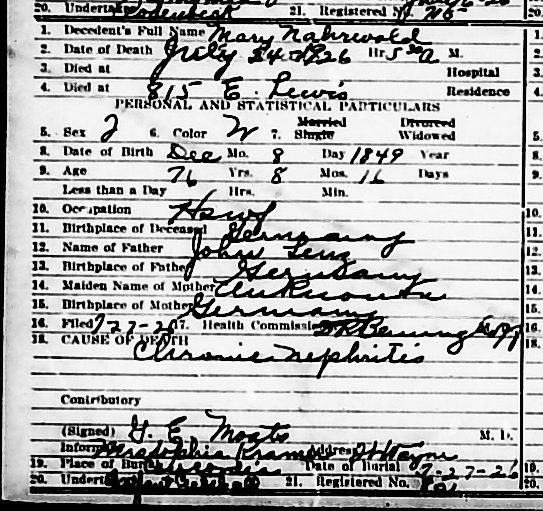 20. Undertaker 21. Registered No.
1. Decedent's Full Name Mary Nahrwold
2. Date of Death July 24 1926 Hr 5 30 a M.
3. Died at Hospital
4. Died at 815 E. Lewis Residence
PERSONAL AND STATISTICAL PARTICULARS
Married Divorced
5. Sex F 6. Color W 7. Single Widowed
8. Date of Birth Dec Mo. 8 Day 1849 Year
9. Age 76 Yrs. 8 Mos. 16 Days
Less than a Day Hrs. Min.
10. Occupation Hswf
11. Birthplace of Deceased Germany
12. Name of Father John
13. Birthplace of Father Germany
14. Maiden Name of Mother Unknown
15. Birthplace of Mother Germany
16. Filed 7-27-26 17. Health Commissioner
18. CAUSE OF DEATH
Chronic nephritis
Contributory
(Signed) G. E. Moats M. D.
Informant Mrs Sophia Kramer Address Ft Wayne
19. Place of Burial Date of Burial 7-27-26
20. Undertaker 21. Registered No.